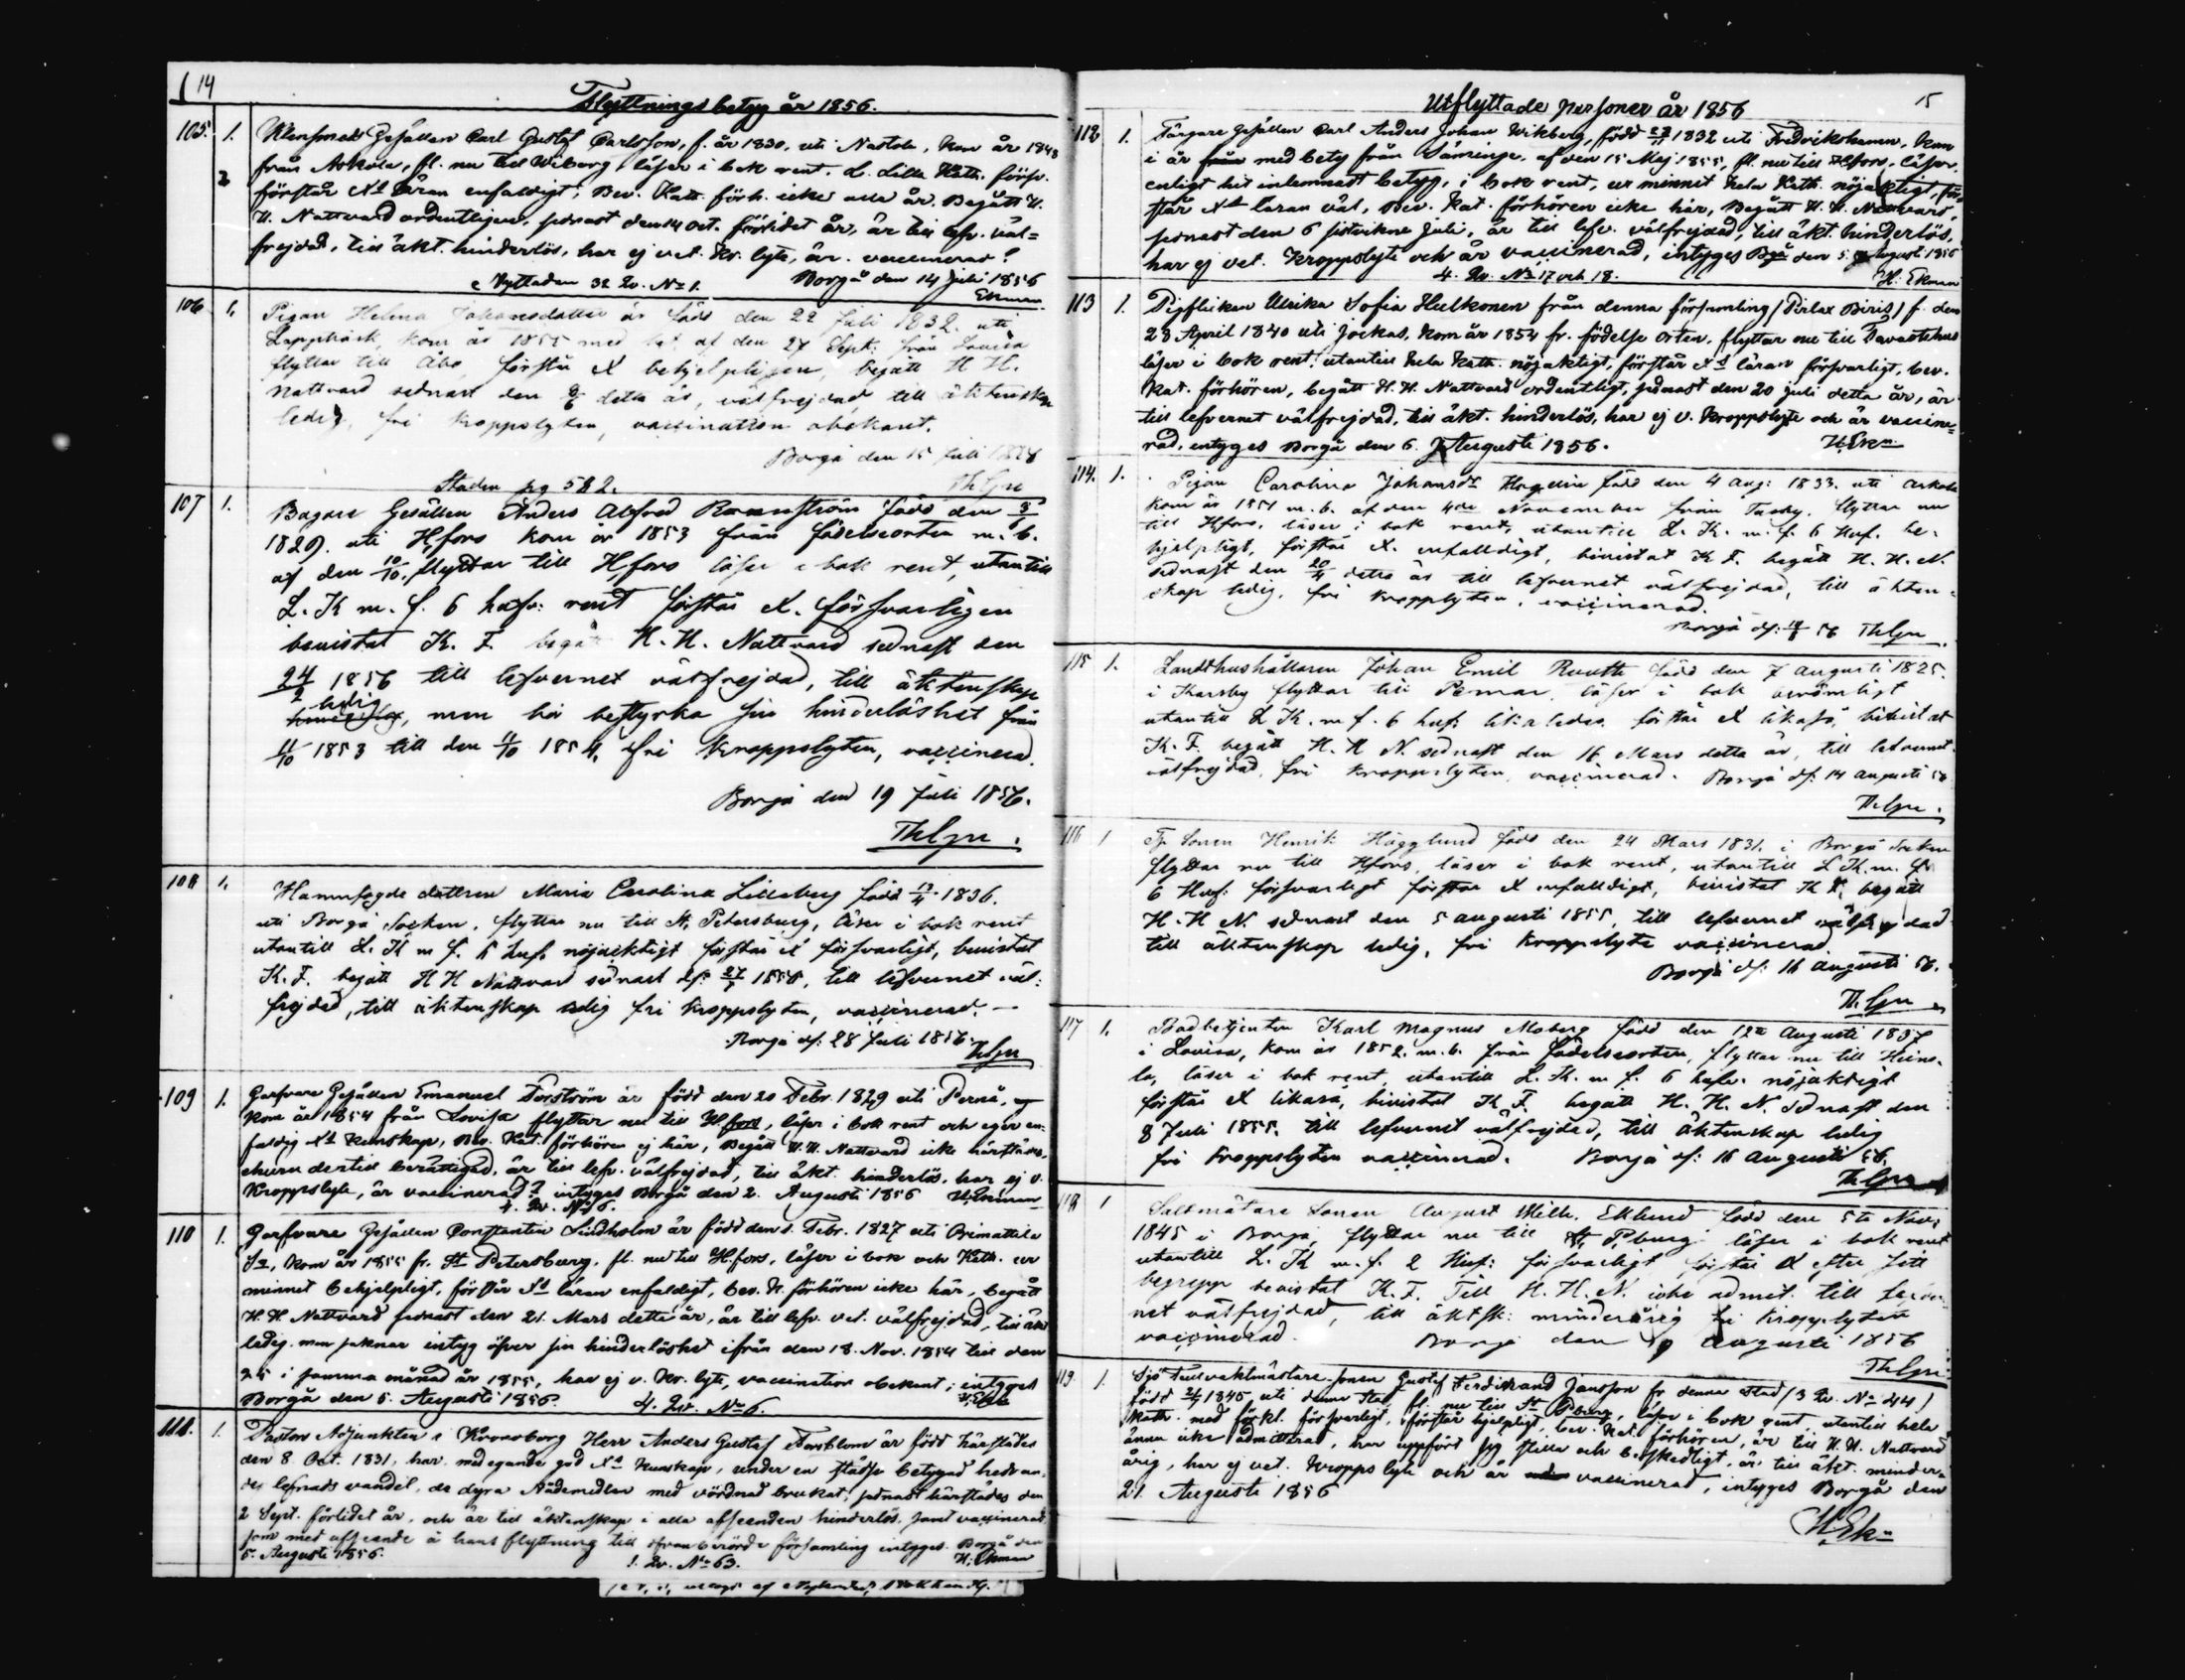 14
Flyttnings betyg år 1856.
105. 1. Klensmeds Gesällen Carl Gustaf Carlsson, f. år 1830, uti Nastola, kom år 1848
från Askola, fl. nu till Wiborg, läser i bok rent, d. lilla Kath. försv.
2 förstår Xd läran enfaldigt; Bev. Kath. förh. icke alla år. Begått H.
H. Nattvard ordentligen, sednast den 14 Oct. förlidet år, är till lefv. väl=
frejdad, till äkt. hinderlös, har ej vet. Kr. lyte, är vaccinerad?
Borgå den 14 Juli 1856
Nyttaden 32 Qv. No 1.
Ekman
106 1. Pigan Helena Johansdotter är född den 22 Juli 1832 uti
Lappträsk, kom år 1855 med bet. af den 27 Sept. från Lovisa
flyttar till Åbo, förstår X behjelpligen, begått H H.
Nattvard sednast den detta år, välfrejdad, till äktenskap
ledig, fri kroppslyten, vaccination obekant.
Borgå den 15 Juli
Staden pg 582.
ThGrn
107 1. Bagare Gesällen Anders Alfred född den
1829 uti H,fors kom år 1853 från födelseorten m. b.
af den 10/10, flyttar till H,fors läser i bok rent, utantill
L. K m. f. 6 hufv: rent förstår X. försvarligen
bevistat K. F. begått H. H. Nattvard sednast den
24/2 1856 till lefvernet välfrejdad, till äktenskap
ledig
men bör bestyrka sin hinderlöshet från
11/10 1853 till den 11/10 1854, fri kroppslyten, vaccinerad.
Borgå den 19 Juli 1856.
ThGrn.
108 1. Hamnfogde dottren Maria Carolina Lilleberg född 1836.
uti Borgå Socken, flyttar nu till St. Petersburg, läser i bok rent
utantill L. K m f. 6 huf. nöjaktigt förstår X försvarligt, bevistat
K. F. begått H H Nattvard sednast d: till lefvernet väl:
frejdad, till äktenskap ledig fri kroppslyten, vaccinerad.
Borgå d: 28 Juli 1856.
ThGrn
109 1. Garfvare Gesällen Emanuel Forström är född den 20 Febr. 1829 uti Pernå,
kom år 1854 från Lovisa flyttar nu till H.fors, läser i bok rent och eger en=
faldig Xd kunskap, Bev. Kat. förhören ej här, Begått H. H. Nattvard icke härstädes,
ehuru dertill berättigad, är till lefv. välfrejdad, till äkt. hinderlös, har ej v.
Kroppslyte, är vaccinerad? intygas Borgå den 2. Augusti 1856 H. Ekman
4. Qv. No 6.
110 1. Garfvare Gesällen Constantin Lindholm är född den 1. Febr. 1827 uti Orimattila
Sn, kom år 1855 fr. St Petersburg, fl. nu till H.fors, läser i bok och Kath. ur
minnet behjelpligt, förstår Xd läran enfaldigt, bev. K. förhören icke här, begått
H. H. Nattvard sednast den 21. Mars detta år, är till lefv. vet. välfrejdad, till äkt
ledig, men saknar intyg öfver sin hinderlöshet ifrån den 18. Nov. 1854 till den
25 i samma månad år 1855, har ej v. Kr. lyte, vaccination obekant; intygas
Borgå den 5. Augusti 1856. 4. Qv. No 6. H. Ekn
111. 1. Pastors Adjunkten i Kronoborg Herr Anders Gustaf Forsblom är född härstädes
den 8 Oct. 1831, har, med egande god Xd kunskap, under en städse betygad hedran=
des lefnads vandel, de dyra Nådemedlen med vördnad brukat, sednast härstädes den
2 Sept. förlidet år, och är till äktenskap i alla afseenden hinderlös, samt vaccinerad
som med afseende å hans flyttning till ofvanberörde församling intygas. Borgå den
5. Augusti 1856. 1. Qv. No 63. H. Ekman
Utflyttade personer år 1856
15
112 1. Färgare gesällen Carl Anders Johan Wikberg, född 1832 uti Fredrikshamn, kom
i år med betyg från Säminge, af den 15 Maj 1855, fl. nu till H.fors, läser,
enligt hit inlemnadt betyg, i bok rent, ur minnet hela Kath. nöjaktigt, för=
står Xd läran väl, Bev. Kat. förhören icke här, Begått H. H. Nattvard,
sednast den 6 sistvikne Juli, är till lefv. välfrejdad, till äkt. hinderlös,
har ej vet. kroppslyte och är vaccinerad, intygas Bgå den 5. Augusti 1856
4. Qv. No 17 och 18. H. Ekman
113 1. Pigflickan Ulrika Sofia Hulkonen från denna församling (Pirlax Biris) f. den
28 April 1840 uti Jockas, kom år 1854 fr. födelse orten, flyttar nu till Tavastehus
läser i bok rent, utantill hela Kath. nöjaktigt, förstår Xd läran försvarligt, bev.
Kat. förhören, begått H. H. Nattvard ordentligt, sednast den 20 juli detta år, är
till lefvernet välfrejdad, till äkt. hinderlös, har ej v. Kroppslyte och är vaccine=
rad, intygas Borgå den 6. Augusti 1856. H. Ekn
114. 1. Pigan Carolina Johansdr Hagelin född den 4 Aug: 1833. uti Askola
kom år 1851 m. b. af den 4de November från Tusby, flyttar nu
till H,fors, läser i bok rent, utantill L. K. m. f. 6 Huf. be=
hjelpligt, förstår X. enfalldigt, bevistat K F. begått H. H. N.
sednast den 20/4 detta år till lefvernet välfrejdad, till äkten=
skap ledig, fri kroppslyten, vaccinerad.
Borgå d: 56 ThGrn
115 1. Landthushållaren Johan Emil Ruuth född den 7 Augusti 1825.
i Karsby flyttar till Pemar, läser i bok berömligt
utantill L K. m f. 6 huf: likaledes förstår X likaså, bevistat
K. F. begått H. H N. sednast den 16 Mars detta år, till lefvernet
välfrejdad, fri kroppslyten, vaccinerad. Borgå d: 14 augusti 56
ThGrn.
116 1 Tp Sonen Henrik Hägglund född den 24 Mars 1831. i Borgå Socken
flyttar nu till H,fors, läser i bok rent, utantill L K. m. f.
6 Huf: försvarligt förstår X enfalldigt, bevistat K F. begått
H. H N. sednast den 5 augusti 1855, till lefvernet välfrejdad
till äktenskap ledig, fri kroppslyte vaccinerad.
Borgå d: 16 augusti 56.
ThGrn
117 1. Bodbetjenten Karl Magnus Moberg född den 12te Augusti 1837
i Lovisa, kom år 1852. m. b. från födelseorten, flyttar nu till Heino=
la, läser i bok rent, utantill L. K. m f. 6 hufv. nöjaktigt
förstår X likaså, bevistat K. F. begått H. H. N. sednast den
8 Juli 1855. till lefvernet välfrejdad, till äktenskap ledig
fri kroppslyten vaccinerad. Borgå d: 16 augusti 56.
ThGrn
118 1 Saltmätare Sonen August Wilh. Eklund född den 5te Nov:
1845 i Borgå, flyttar nu till St. P,burg läser i bok rent
utantill L. K m. f. 2 Huf: försvarligt förstår X efter sitt
begrepp bevistat K. F. Till H. H. N. icke admit. till lefver
net välfrejdad, till äktsk: minderårig fri kroppslyten
vaccinerad. Borgå den 19 augusti 1856
ThGrn.
119. 1. Sjö Tullvaktmästare Sonen Gustaf Ferdinand Jansson fr denna stad (3 Qv. No 44)
född 1845 uti denna stad, fl. nu till St Pburg, läser i bok rent utantill hela
Kath. med förkl. försvarligt, förstår hjelpligt, bev. Kat. förhören, är till H. H. Nattvard
ännu icke admitterad, har uppfört sig stilla och beskedligt, är till äkt. minder=
årig, har ej vet. Kroppslyte och är vaccinerad, intygas Borgå den
21. Augusti 1856
H. Ekn